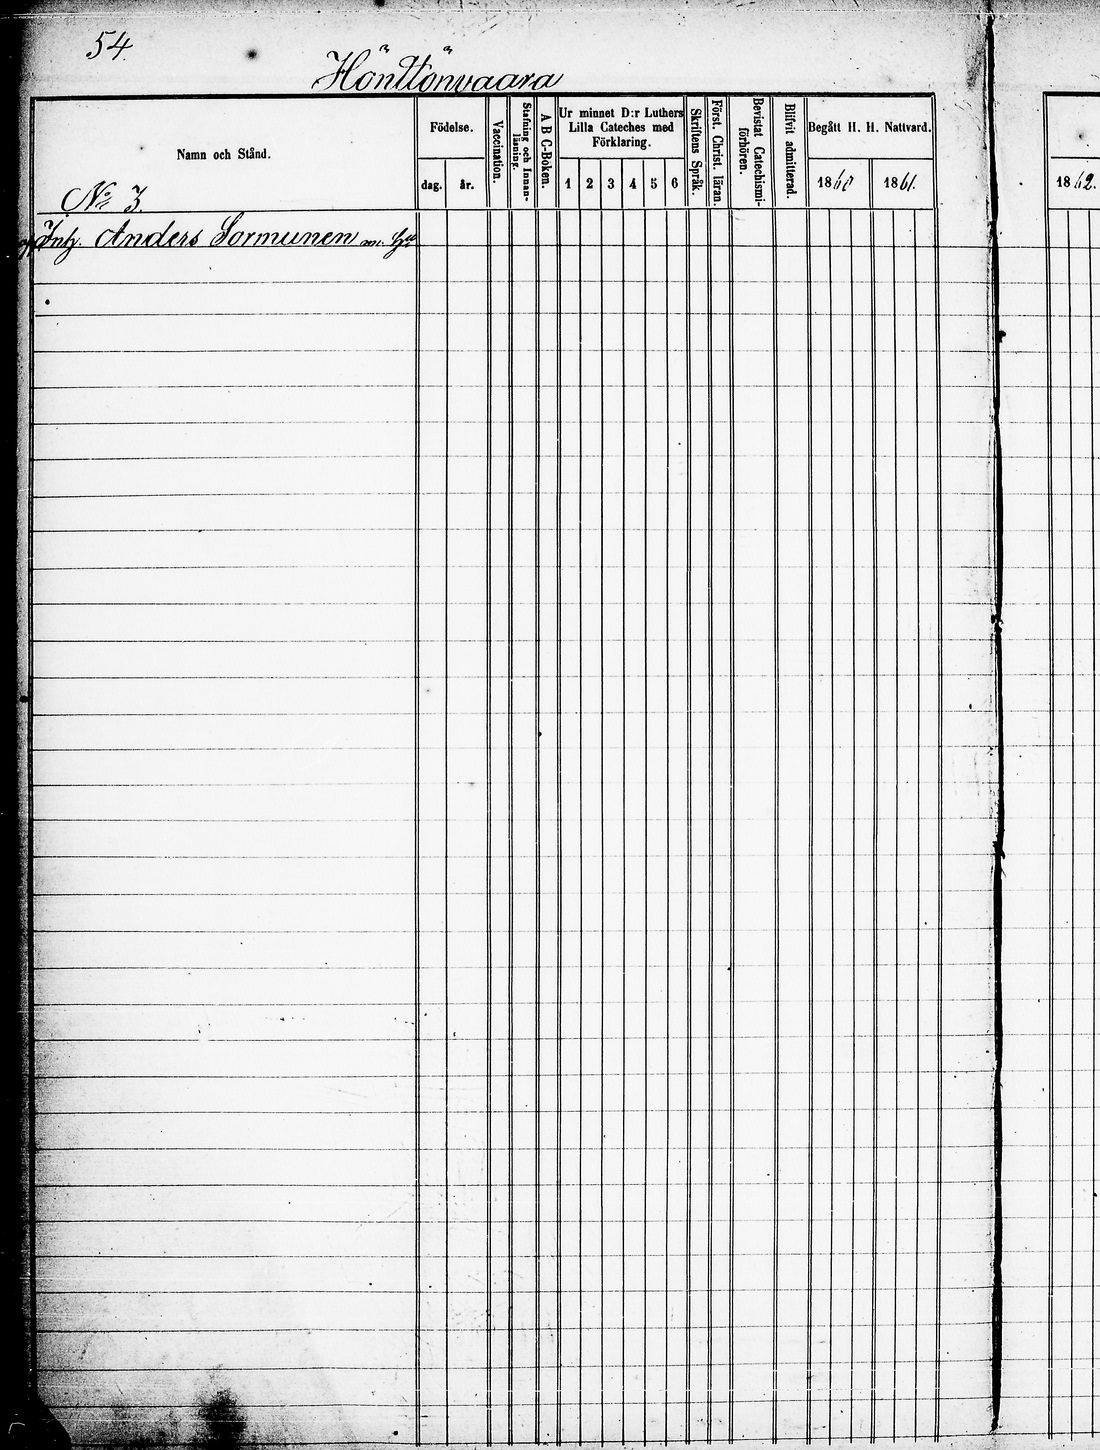 54.
Hönttönvaara
Namn och Stånd.
No 3.
Födelse.
dag.
år.
Vaccination.
Stafning och Innan-
läsning.
A B C-Boken.
Ur minnet D:r Luthers
Lilla Cateches med
Förklaring.
1 2 3 4 5 6
Skriftens Språk.
Först. Christ. läran.
Bevistat Catechismi-
förhören.
Blifvit admitterad.
Begått H. H. Nattvard.
1860
1861.
1862.
Inh. Anders Sormunen m.